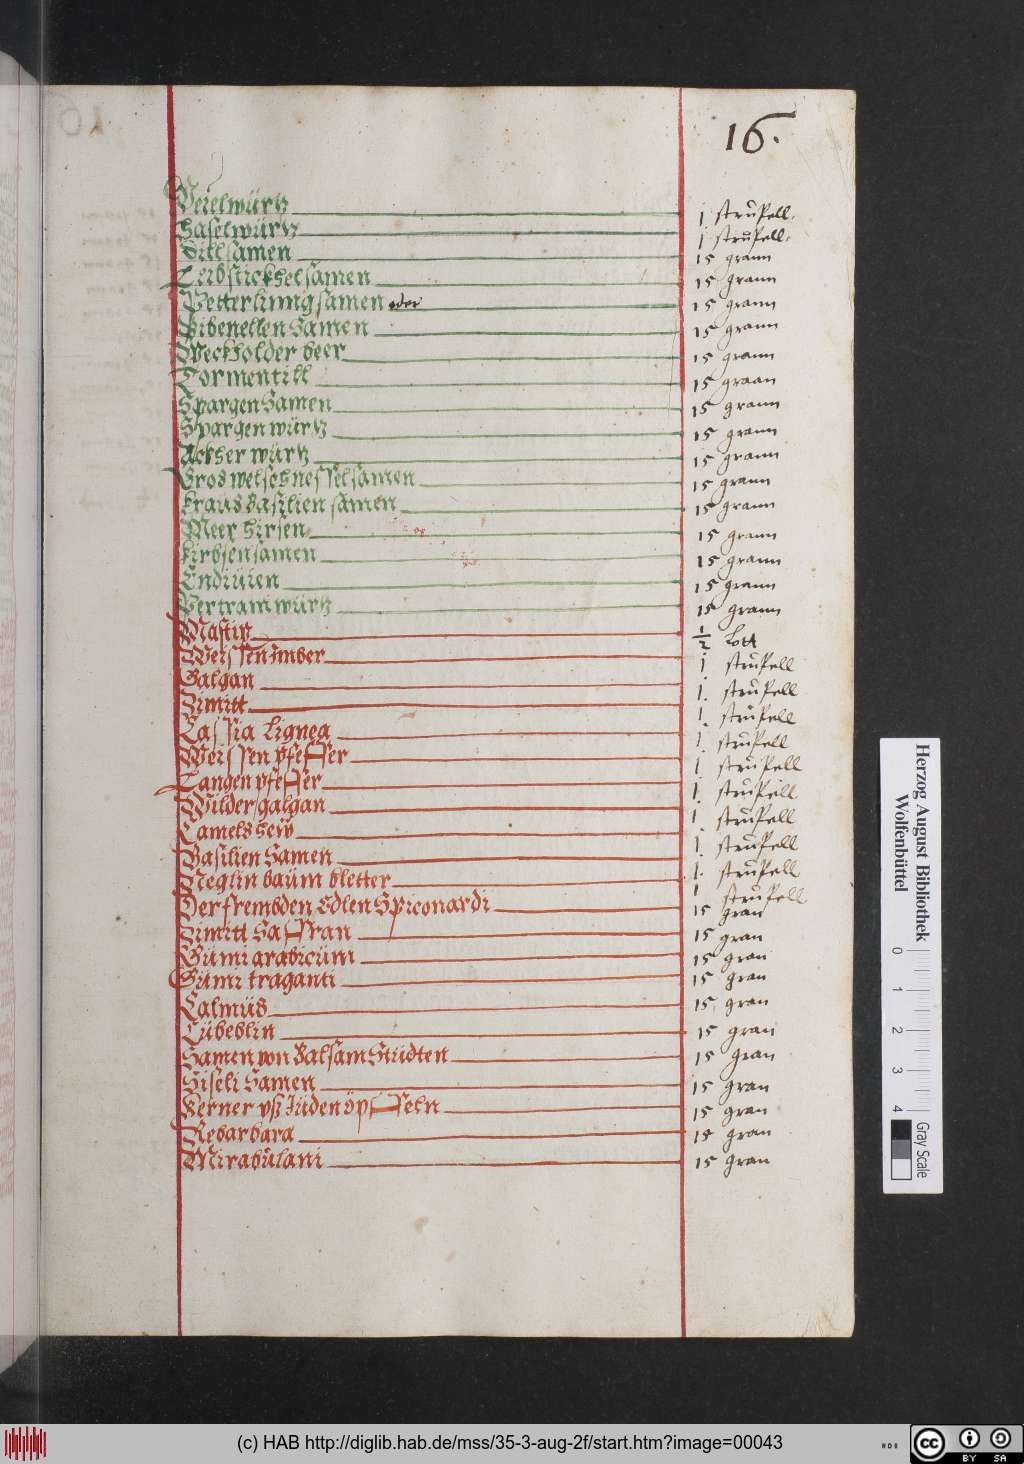 16.
Veielwürtz 1 strupell.
Haselwürtz 1 strupell.
Dillsamen 15 grann
Leibstickhelsamen 15 grann
Petterlinngsamen oder 15 grann
Bibenellen Samen 15 grann
Weckholder beer 15 grann
Tormentill 15 graan
Spargen Samen 15 grann
Spargen würtz 15 grann
Acker würtz 15 grann
Gros welschnesselsamen 15 grann
Kraus Basilien samen 15 grann
Meer hirsen 15 grann
Kirbsensamen 15 grann
Endiuien 15 grann
Pertramwürtz 15 grann
Mastix ½ Lott
Weissen imber 1 strupell
Galgan 1. strupell
Zimitt 1. strupell
Cassia lignea 1. strupell
Weissen pfeffer 1 strupell
Langen pfeffer 1. strupell
Wilder galgan 1. strupell
Camels heiw 1. strupell
Basilien Samen 1. strupell
Neglin baüm bletter 1 strupell
Der frembden Edlen Spiconardi 15 gran
Zimitt Saffran 15 gran
Gümi arabicüm 15 gran
Gümi traganti 15 gran
Calmüs 15 gran
Cübeblin 15 gran
Samen von Balsam Stüdten 15 gran
Siseli Samen 15 gran
Kerner vß Jüden öpffeln 15 gran
Rebarbara 15 gran
Mirabülani 15 gran
Herzog August Bibliothek
Wolfenbüttel
0 1 2 3 4
Gray Scale
(c) HAB http://diglib.hab.de/mss/35-3-aug-2f/start.htm?image=00043
cc BY SA